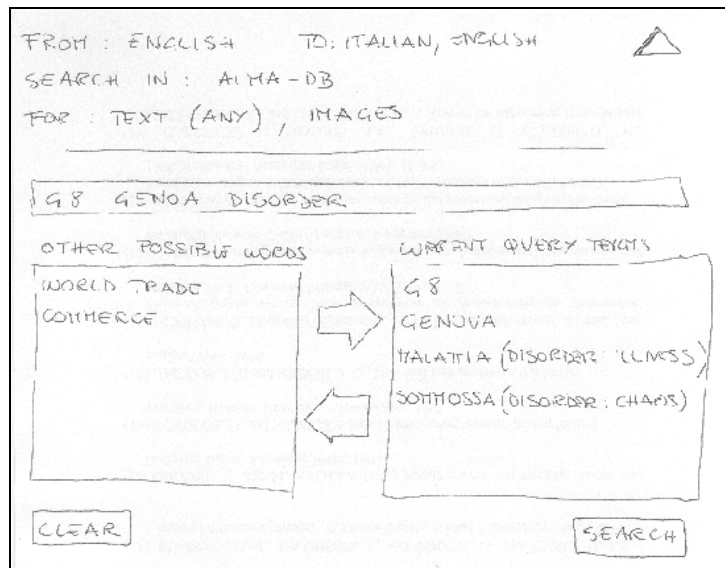 FROM : ENGLISH TO: ITALIAN, ENGLISH
SEARCH IN : ALMA-DB
FOR : TEXT (ANY), IMAGES
G8 GENOA DISORDER
OTHER POSSIBLE WORDS
WORLD TRADE
COMMERCE
CURRENT QUERY TERMS
G8
GENOVA
MALATTIA (DISORDER: ILLNESS)
SOMMOSSA (DISORDER: CHAOS)
CLEAR
SEARCH